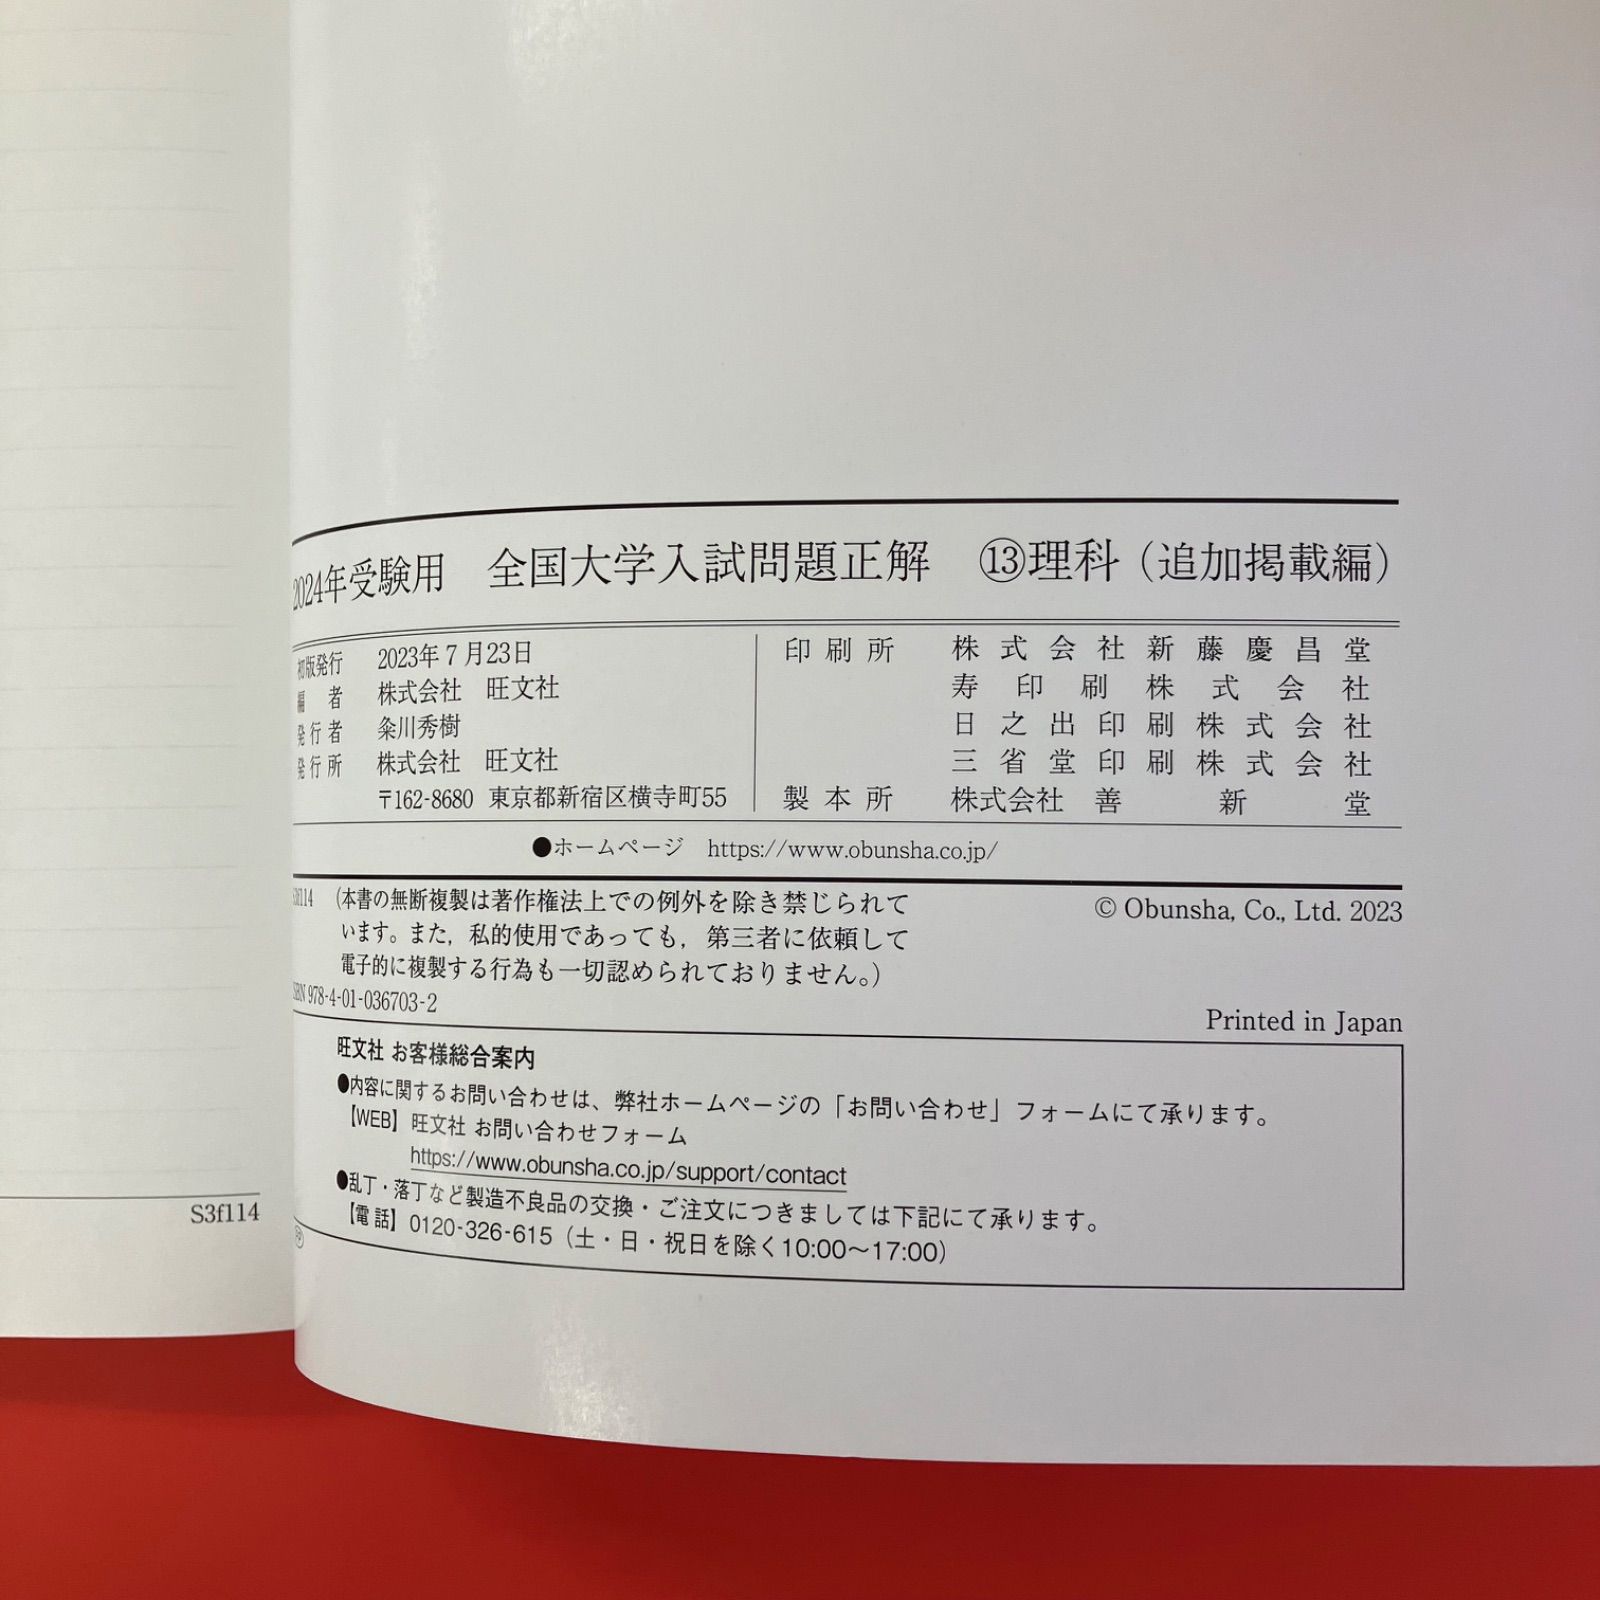 2024年受験用　全国大学入試問題正解　⑬理科（追加掲載編）
初版発行　2023年7月23日
編者　株式会社　旺文社
発行者　粂川秀樹
発行所　株式会社　旺文社
〒162-8680　東京都新宿区横寺町55
印刷所　株式会社新藤慶昌堂
寿印刷株式会社
日之出印刷株式会社
三省堂印刷株式会社
製本所　株式会社善新堂
●ホームページ　https://www.obunsha.co.jp/
S3f114　（本書の無断複製は著作権法上での例外を除き禁じられて
います。また，私的使用であっても，第三者に依頼して
電子的に複製する行為も一切認められておりません。）
© Obunsha, Co., Ltd. 2023
ISBN 978-4-01-036703-2
Printed in Japan
旺文社 お客様総合案内
●内容に関するお問い合わせは、弊社ホームページの「お問い合わせ」フォームにて承ります。
【WEB】旺文社 お問い合わせフォーム
https://www.obunsha.co.jp/support/contact
●乱丁・落丁など製造不良品の交換・ご注文につきましては下記にて承ります。
【電話】0120-326-615（土・日・祝日を除く10:00〜17:00）
S3f114